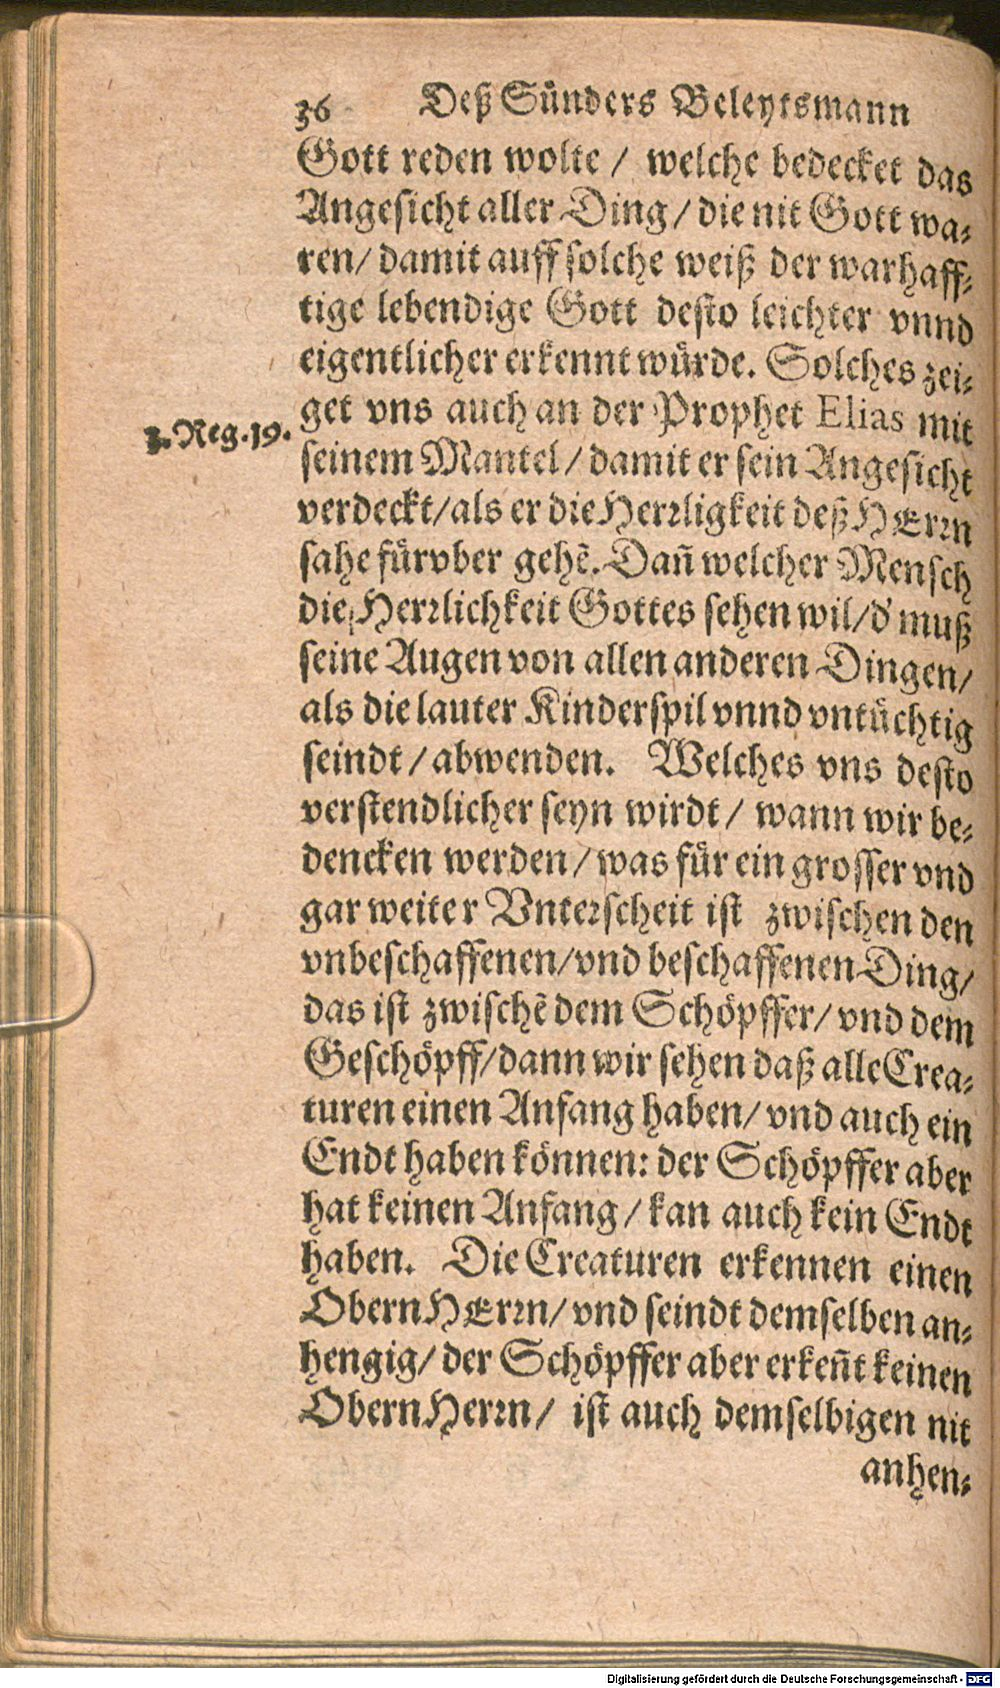 36 Deß Sünders Beleytsmann
Gott reden wolte / welche bedecket das
Angesicht aller Ding / die nit Gott wa⸗
ren / damit auff solche weiß der warhaff⸗
tige lebendige Gott desto leichter vnnd
eigentlicher erkennt würde. Solches zei⸗
get vns auch an der Prophet Elias mit
3. Reg. 19.
seinem Mantel / damit er sein Angesicht
verdeckt / als er die Herrligkeit deß HErrn
sahe fürvber gehẽ. Dañ welcher Mensch
die Herrlichkeit Gottes sehen wil / d' muß
seine Augen von allen anderen Dingen /
als die lauter Kinderspil vnnd vntüchtig
seindt / abwenden. Welches vns desto
verstendlicher seyn wirdt / wann wir be⸗
dencken werden / was für ein grosser vnd
gar weiter Vnterscheit ist zwischen den
vnbeschaffenen / vnd beschaffenen Ding /
das ist zwischẽ dem Schöpffer / vnd dem
Geschöpff / dann wir sehen daß alle Crea⸗
turen einen Anfang haben / vnd auch ein
Endt haben können: der Schöpffer aber
hat keinen Anfang / kan auch kein Endt
haben. Die Creaturen erkennen einen
Obern HErrn / vnd seindt demselben an⸗
hengig / der Schöpffer aber erkeñt keinen
Obern Herrn / ist auch demselbigen nit
anhen⸗
Digitalisierung gefördert durch die Deutsche Forschungsgemeinschaft - DFG